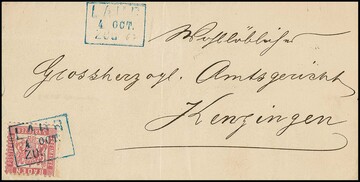 LAHR
4 OCT.
Wohllöbliches
Grossherzogl. Amtsgericht
Kenzingen
LAHR
4 OCT.